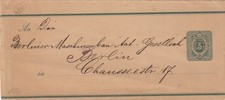 An Die
Berliner Maschinenbau Act. Gesellsch.
Berlin
Chausseestr 17.